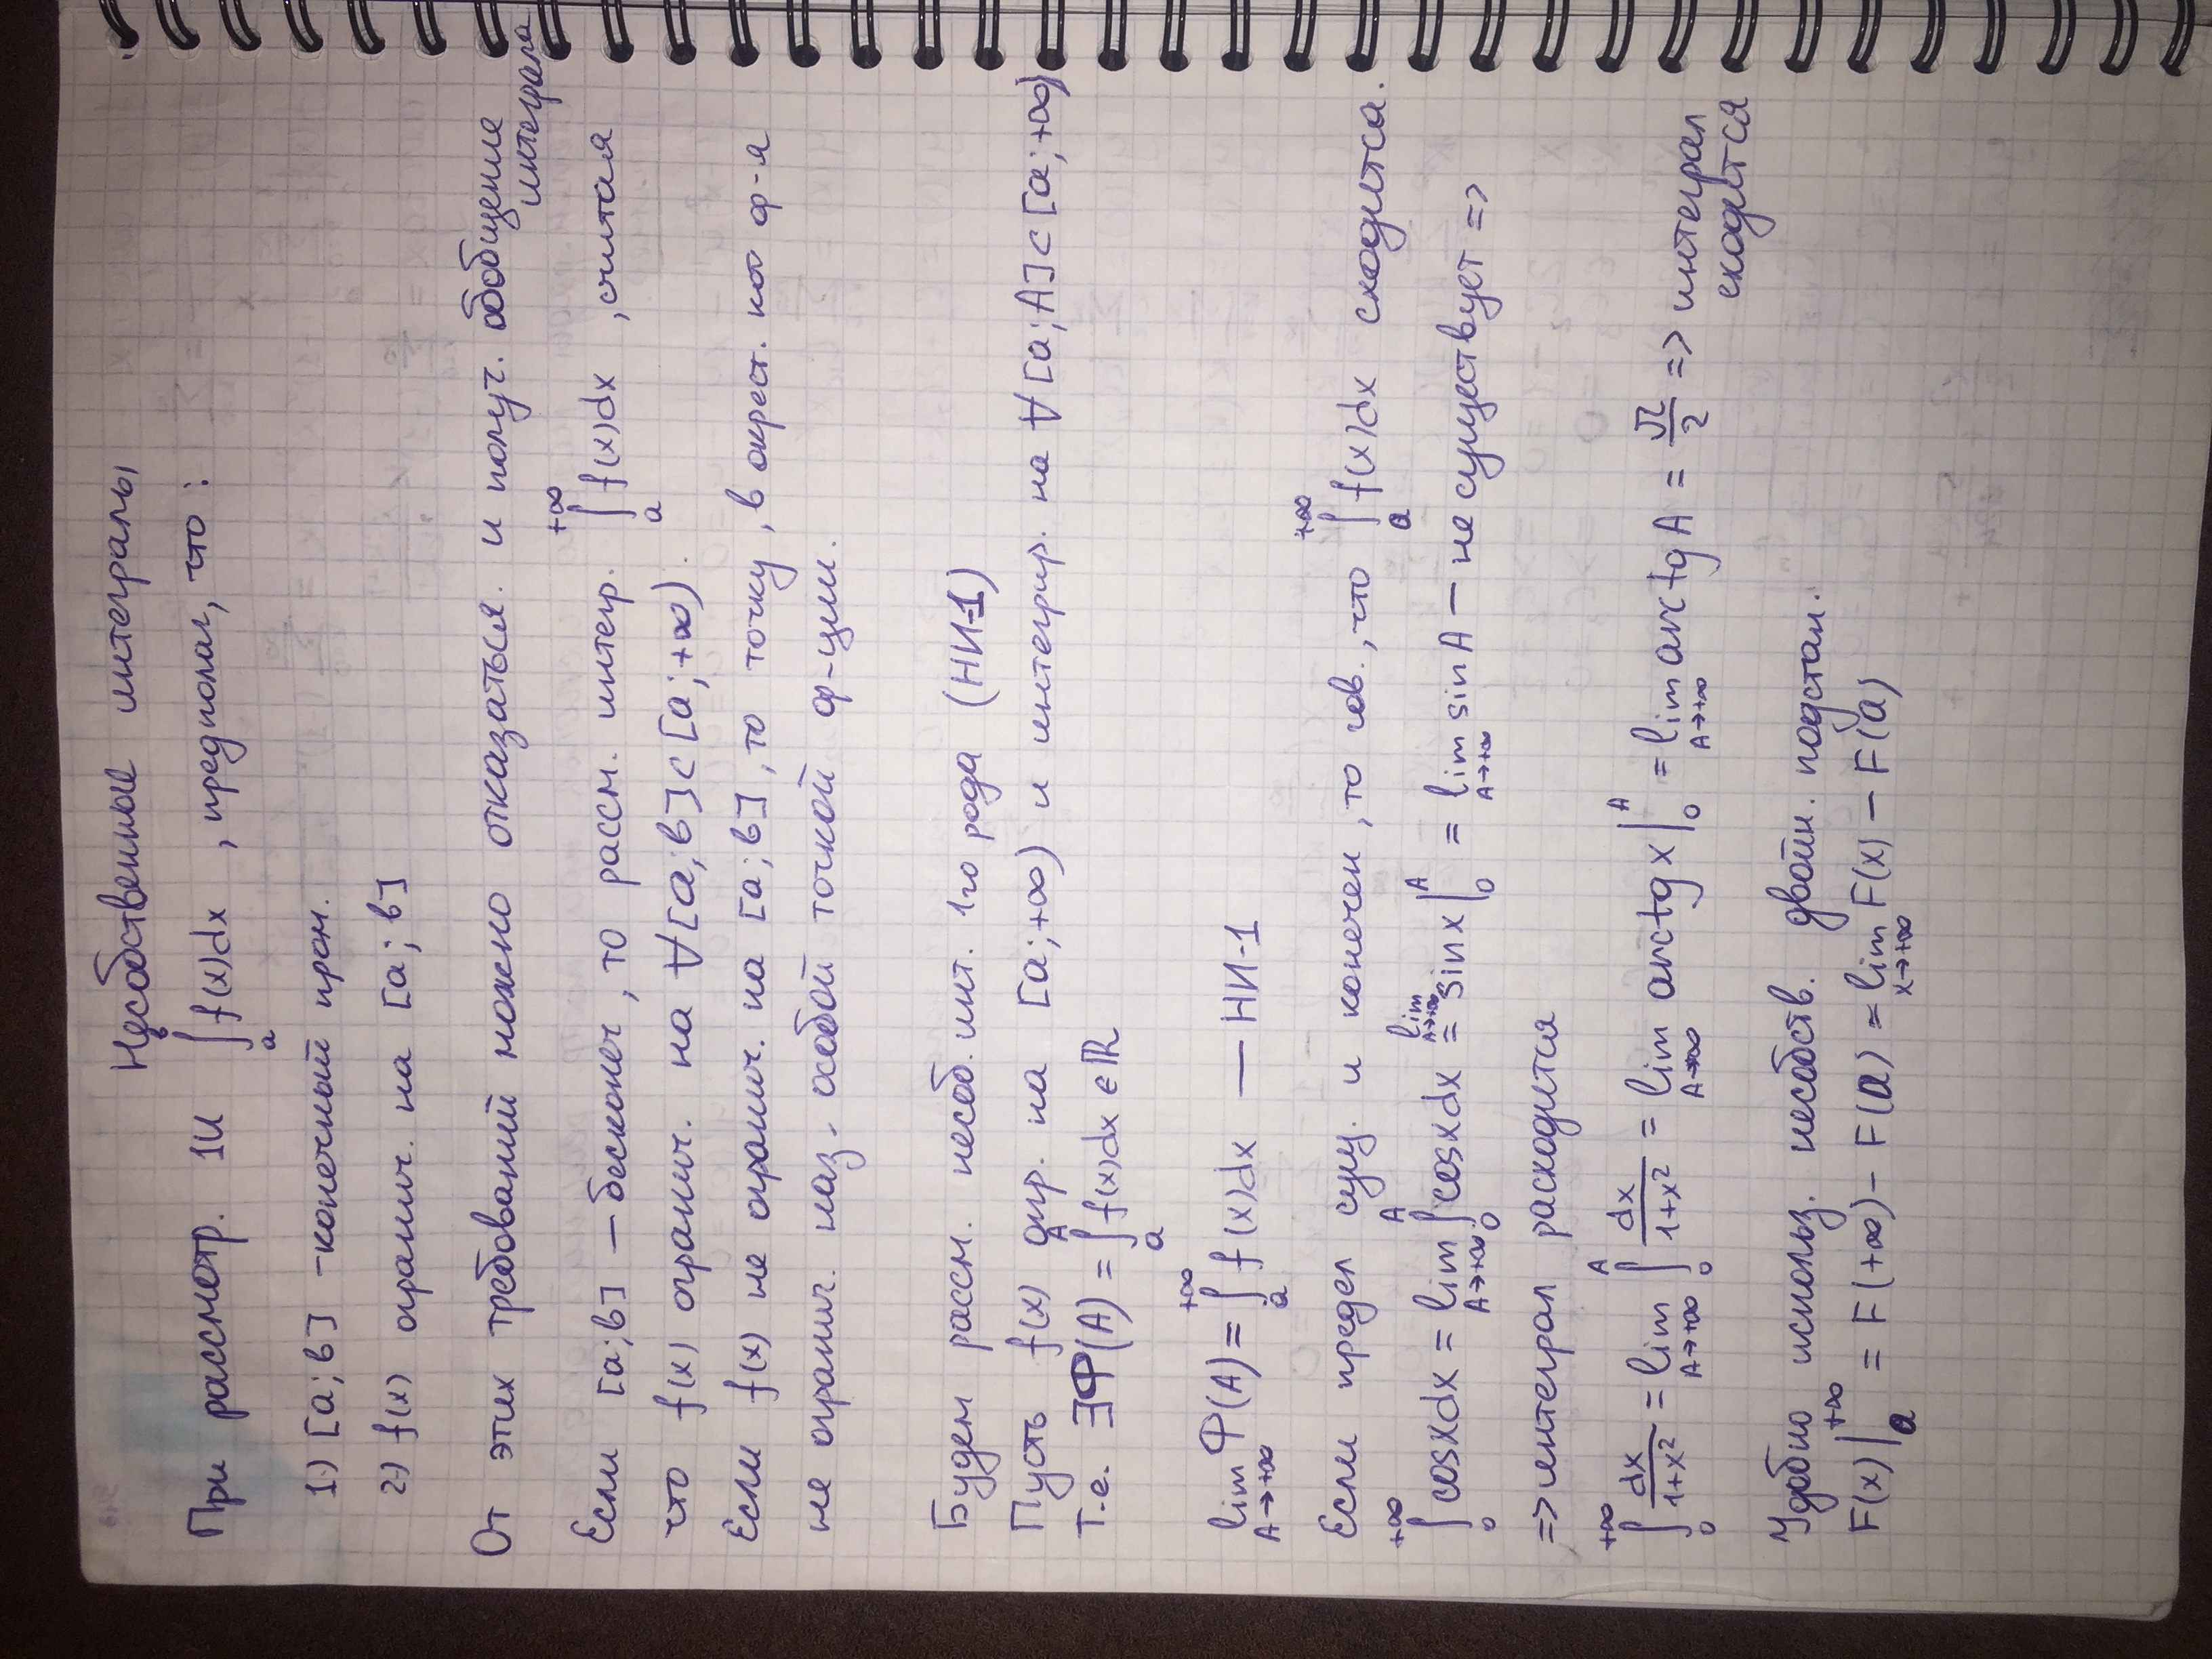 Несобственные интегралы
При рассмотр. 1И ∫_a^b f(x)dx , предполаг, что :
1.) [a;b] – конечный пром.
2.) f(x) огранич. на [a;b]
От этих требований можно отказаться. и получ. обобщение
интеграла
Если [a;b] – бесконеч, то рассм. интегр. ∫_a^{+∞} f(x)dx , считая
что f(x) огранич. на ∀[a;b]⊂[a;+∞).
Если f(x) не огранич. на [a;b], то точку, в окрест. кот ф-я
не огранич. наз. особой точкой ф-ции.
Будем рассм. несоб. инт. 1го рода (НИ-1)
Пусть f(x) огр. на [a;+∞) и интегрир. на ∀[a;A]⊂[a;+∞)
Т.е. ∃Ф(A) = ∫_a^A f(x)dx ∈ ℝ
lim_{A→+∞} Ф(A) = ∫_a^{+∞} f(x)dx — НИ-1
Если предел сущ. и конечен, то гов., что ∫_a^{+∞} f(x)dx сходится.
∫_0^{+∞} cosxdx = lim_{A→+∞} ∫_0^A cosxdx = lim_{A→+∞} sinx|_0^A = lim_{A→+∞} sinA — не существует =>
=> интеграл расходится
∫_0^{+∞} dx/(1+x²) = lim_{A→+∞} ∫_0^A dx/(1+x²) = lim_{A→∞} arctgx|_0^A = lim_{A→+∞} arctgA = π/2 => интеграл
сходится
Удобно использ. несобств. двойн. подстан.
F(x)|_a^{+∞} = F(+∞) - F(a) = lim_{x→+∞} F(x) – F(a)